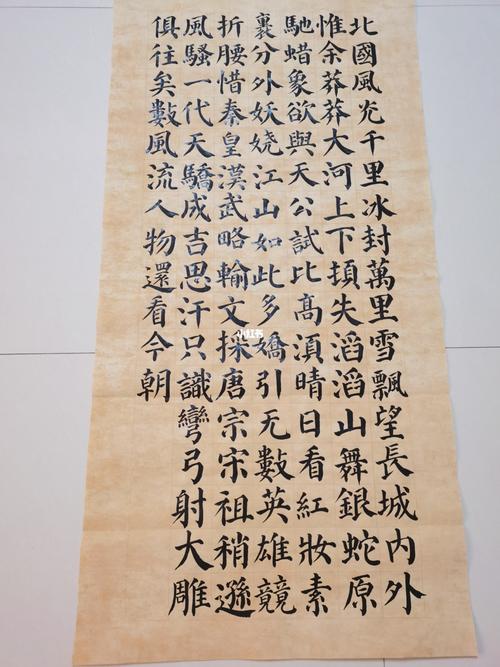 北國風光千里冰封萬里雪飄望長城内外
惟余莽莽大河上下頓失滔滔山舞銀蛇原
馳蜡象欲與天公試比高湏晴日看紅妝素
裹分外妖娆江山如此多嬌引无數英雄競
折腰惜秦皇漢武略輸文採唐宗宋祖稍遜
風騷一代天驕成吉思汗只識彎弓射大雕
俱往矣數風流人物還看今朝
小红书